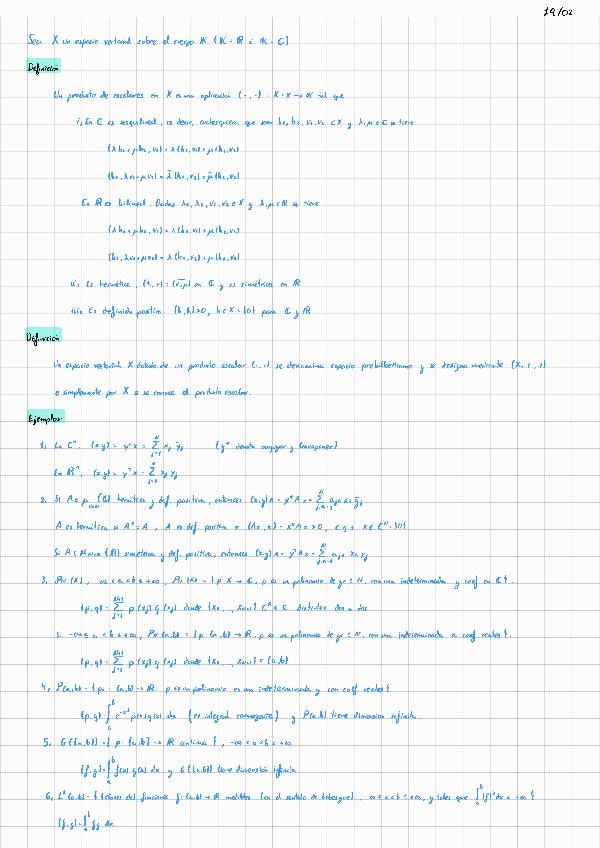 19/02
Sea X un espacio vectorial sobre el cuerpo K (K = R ó K = C)
Definición
Un producto de escalares en X es una aplicación (·,·) : X × X → K tal que
i, En C es sesquilineal, es decir, cualesquiera que sean h₁, h₂, v₁, v₂ ∈ X y λ, μ ∈ C se tiene
(λh₁ + μh₂, v₁) = λ(h₁, v₁) + μ(h₂, v₁)
(h₁, λv₁ + μv₂) = λ̄(h₁, v₁) + μ̄(h₁, v₂)
En R es bilineal. Dados h₁, h₂, v₁, v₂ ∈ X y λ, μ ∈ R se tiene
(λh₁ + μh₂, v₁) = λ(h₁, v₁) + μ(h₂, v₁)
(h₁, λv₁ + μv₂) = λ(h₁, v₁) + μ(h₁, v₂)
ii, Es hermítica, en C y es simétrica en R
iii, Es definida positiva. (h,h) > 0, h ∈ X \ {0} para C y R
Definición
Un espacio vectorial X dotado de un producto escalar (·,·) se denomina espacio prehilbertiano y se designa mediante (X, (·,·))
o simplemente por X si se conoce el producto escalar.
Ejemplos
1, En Cⁿ, (x,y) = y*x = Σ xⱼ ȳⱼ (y* denota conjugar y transponer)
En Rⁿ, (x,y) = yᵗx = Σ xⱼ yⱼ
2. Si A ∈ M (C) hermítica y def. positiva, entonces (x,y)A = y*Ax = Σ
A es hermítica si A* = A, A es def. positiva si (Ax,x) = x*Ax > 0, x ∈ Cᴺ \ {0}
Si A ∈ M (R) simétrica y def. positiva, entonces (x,y)A = yᵗAx = Σ
3. p es un polinomio de gr ≤ N, con una indeterminada y coef en C}.
(p,q) = Σ p(xⱼ) q(xⱼ) donde distintos dos a dos
Si -∞ ≤ a < b ≤ +∞, p es un polinomio de gr ≤ N, con una indeterminada a coef reales}.
(p,q) = Σ p(xⱼ) q(xⱼ) donde ⊂ (a,b)
4, P(a,b) = {p : (a,b) → R. p es un polinomio en una indeterminada y con coef. reales}
(p,q) = ∫ e^(-x²) p(x) q(x) dx (es integral convergente) y P(a,b) tiene dimensión infinita.
5. C([a,b]) = {p : [a,b] → R continua}, -∞ < a < b < +∞
(f,g) = ∫ f(x) g(x) dx y C([a,b]) tiene dimensión infinita
6, L²(a,b) = {(clases de) funciones f: (a,b) → R medibles (en el sentido de Lebesgue), y tales que ∫ |f|² dx < +∞}
(f,g) = ∫ fg dx